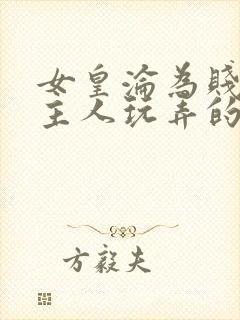 女皇淪為賤
主人玩弄的
方毅夫